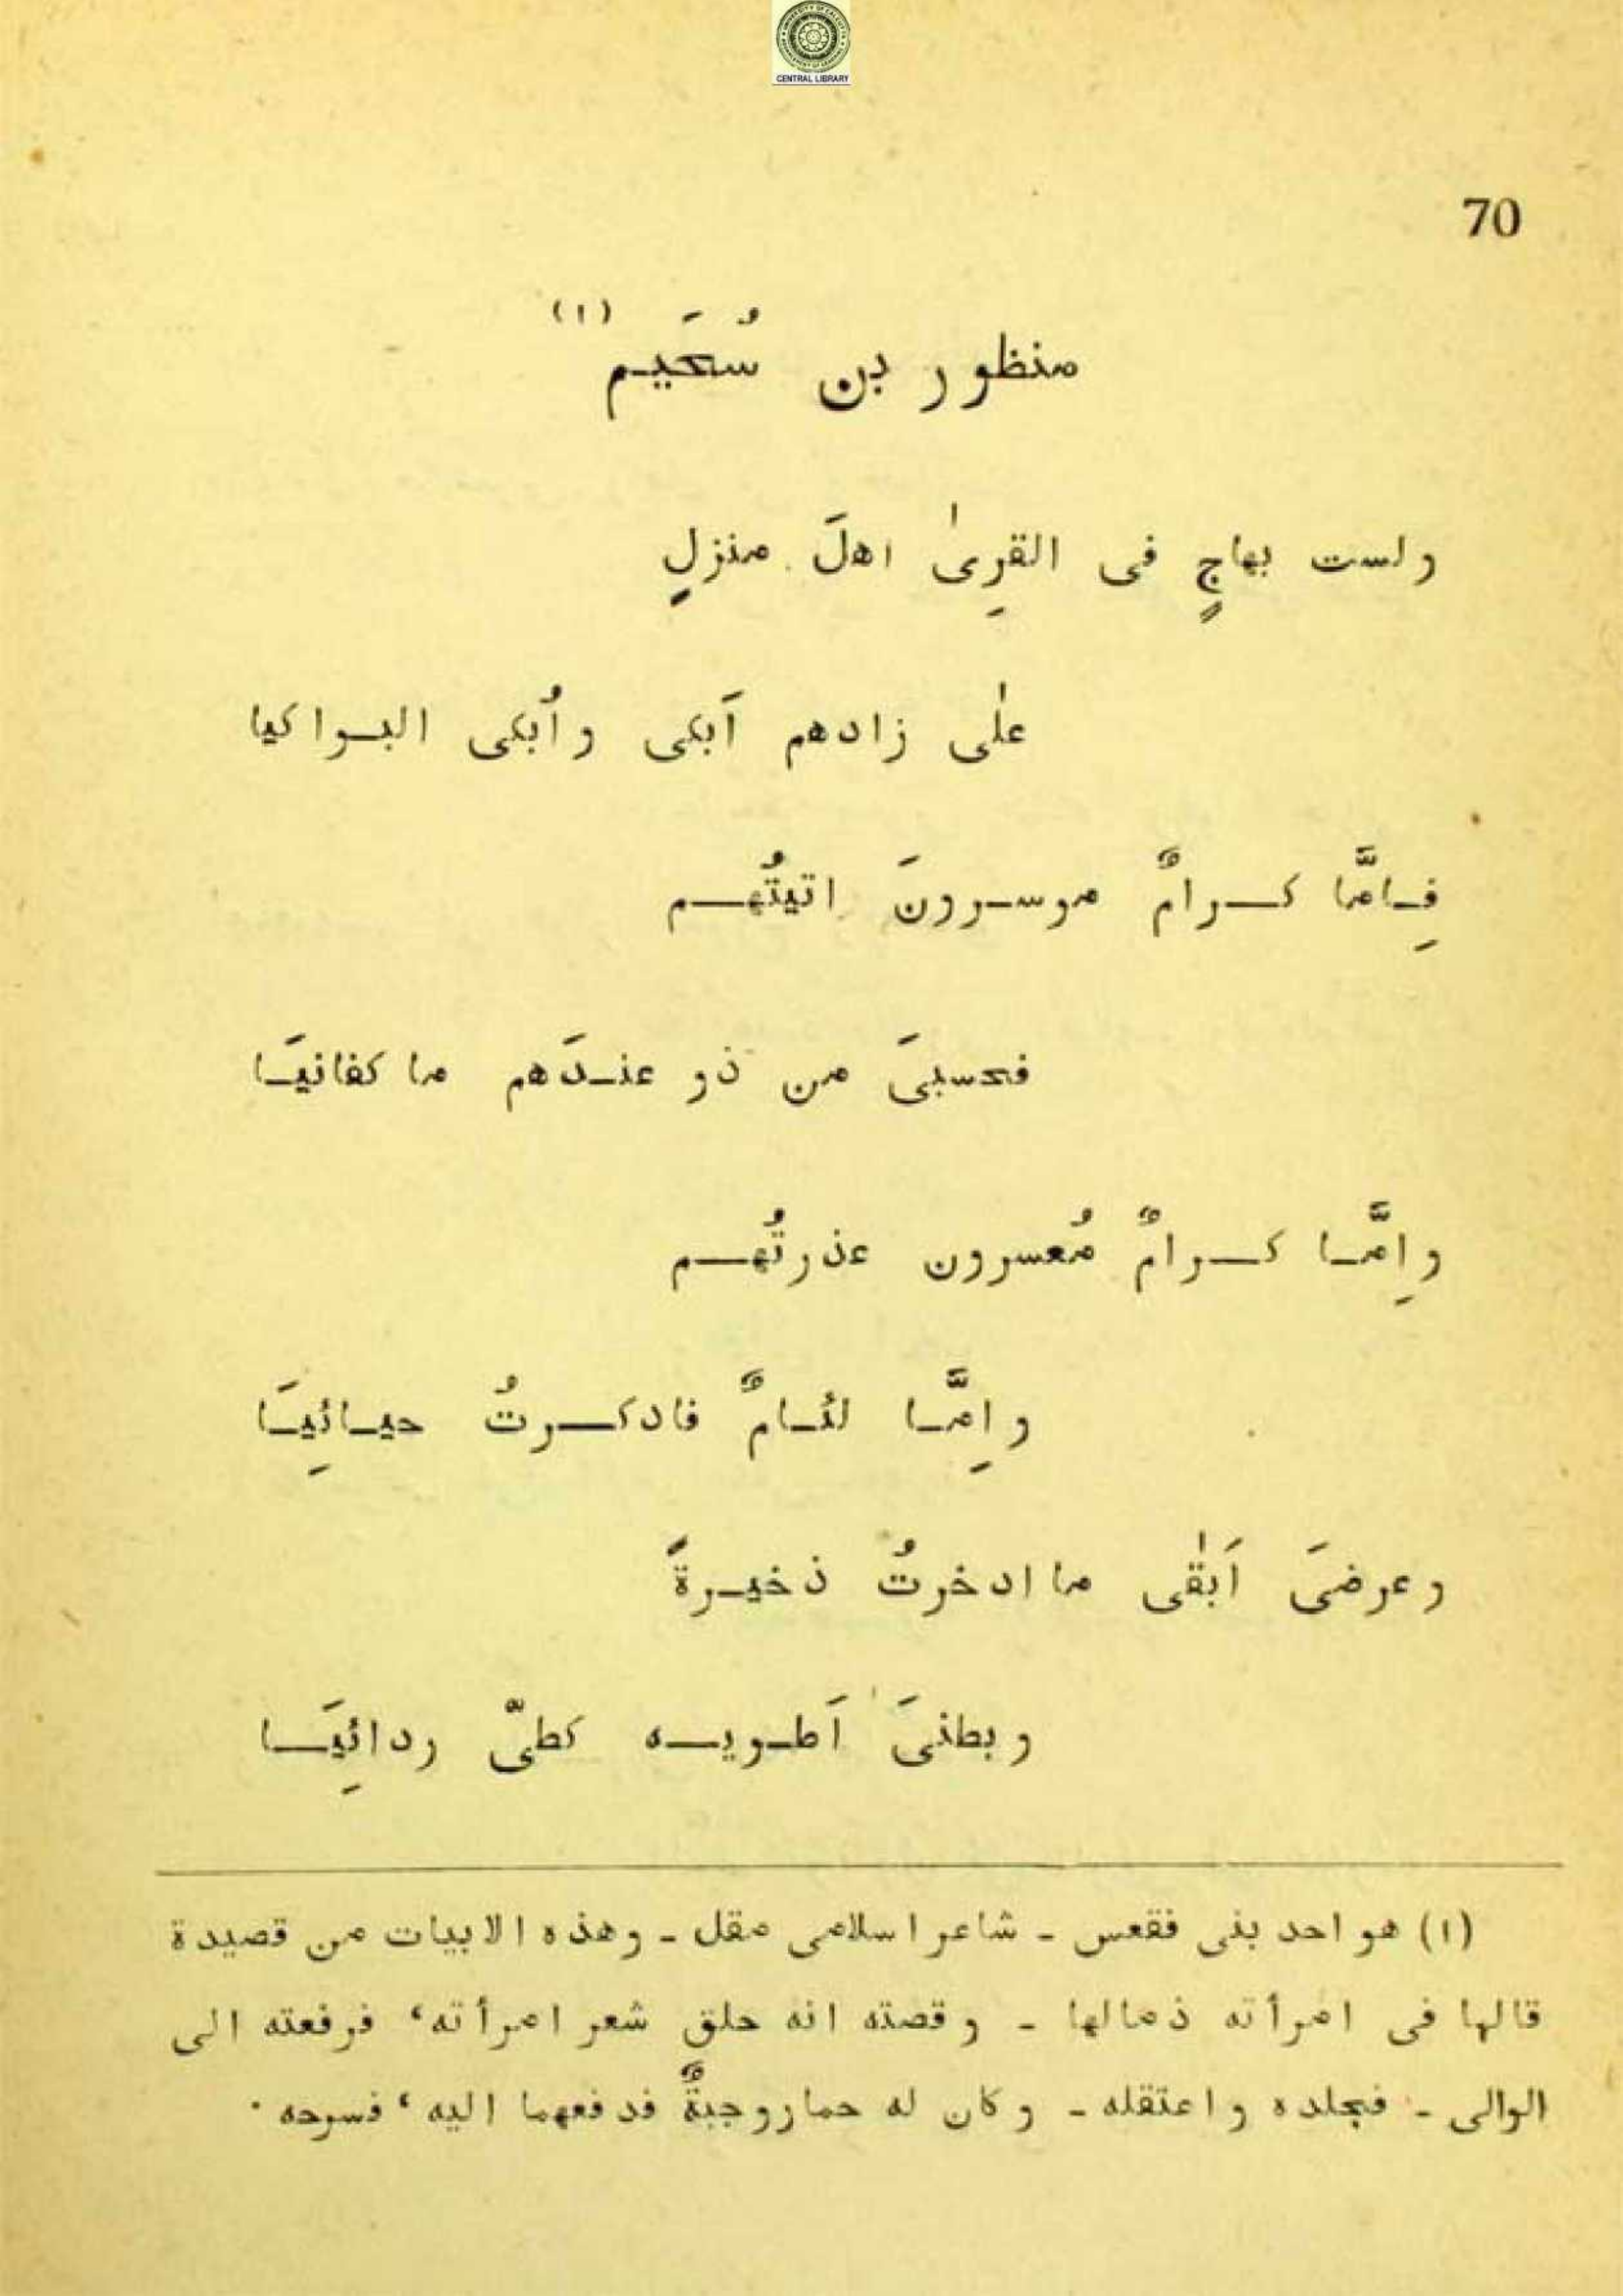 CENTRAL LIBRARY
70
منظور بن سُحَيم (١)
ولست بهاجٍ فى القرِىٰ اهلَ منزلٍ
علٰى زادهم آبكى وأُبكى البواكيا
فِامَّا كرامٌ موسرونَ اتيتُهم
فحسبىَ من ذو عندَهم ما كفانيَا
واِمَّا كرامٌ مُعسرون عذرتُهم
واِمَّا لئامٌ فادكرتُ حيائِيَا
وعرضىَ اَبقٰى ما ادخرتُ ذخيرةً
وبطنىَ اَطويه كطىّ ردائِيَا
(١) هو احد بنى فقعس - شاعر اسلامى مقل - وهذه الابيات من قصيدة
قالها فى امرأته ذمالها - وقصته انه حلق شعر امرأته، فرفعته الى
الوالى - فجلده واعتقله - وكان له حمار وجبةٌ فدفعهما اليه، فسرحه ٠